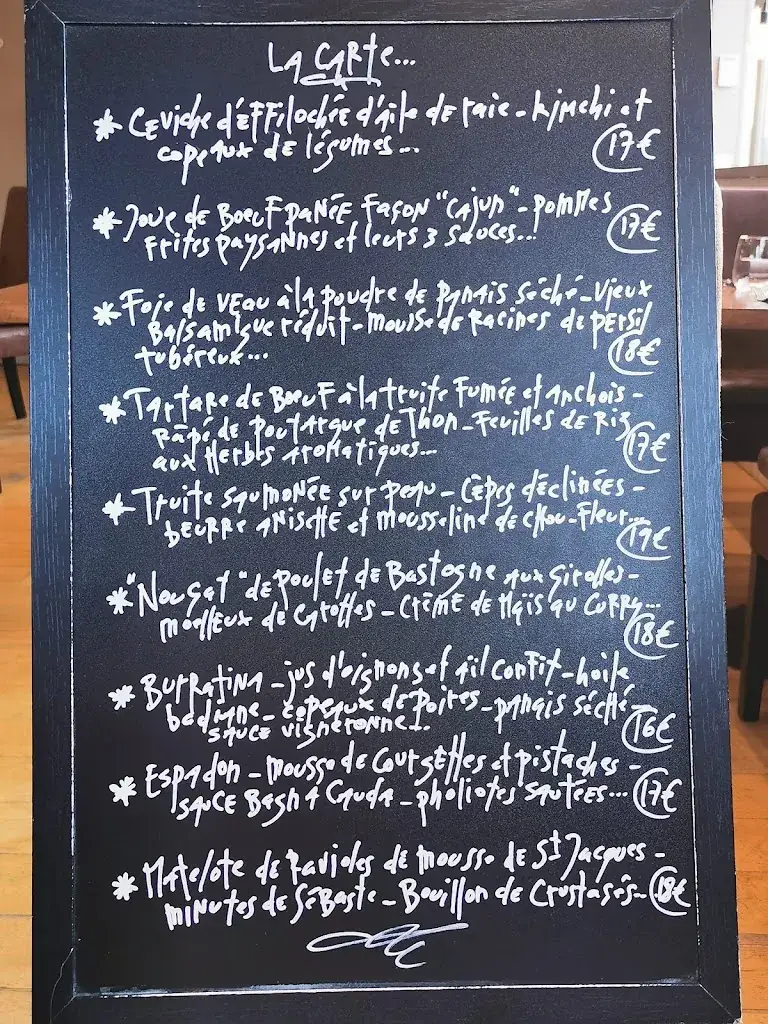 La Carte...
* Ceviche d'effilochée d'aile de raie - kimchi et
copeaux de légumes... 17€
* Joue de Boeuf panée façon "cajun" - pommes
frites paysannes et leurs 3 sauces... 17€
* Foie de veau à la poudre de panais séché - vieux
Balsamique réduit - mousse de racines de persil
tubéreux... 18€
* Tartare de Boeuf à la truite fumée et anchois -
râpé de poutargue de thon - feuilles de riz
aux herbes aromatiques... 17€
* Truite saumonée sur peau - Cèpes déclinées -
beurre anisette et mousseline de chou-fleur... 17€
* "Nougat" de poulet de Bastogne aux girolles -
moelleux de carottes - crème de maïs au curry... 18€
* Burratina - jus d'oignons et ail confit - huile
badiane - copeaux de poires - panais séché -
sauce vigneronne... 16€
* Espadon - mousse de courgettes et pistaches -
sauce Bagna Cauda - pholiotes sautées... 17€
* Matelote de ravioles de mousse de St Jacques -
minutes de sébaste - Bouillon de crustasés... 18€